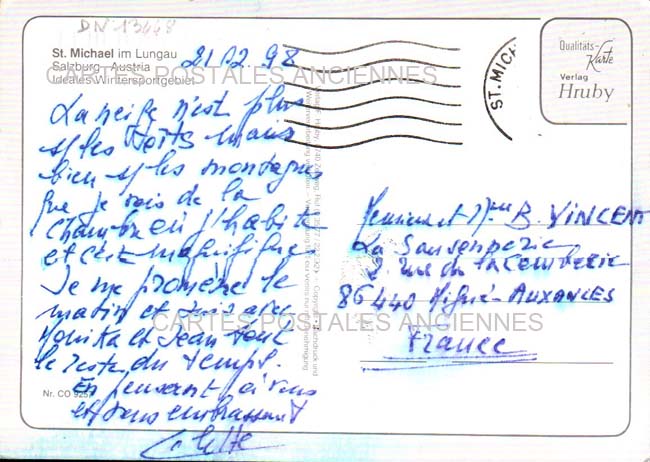 DN 13448
St. Michael im Lungau
Salzburg - Austria
Ideales Wintersportgebiet
21.02.98
CARTES POSTALES ANCIENNES
La neige n'est plus
s/ les toits mais
bien s/ les montagnes
que je vois de la
chambre où j'habite
et c'est magnifique
Je me promène le
matin et suis avec
Monika et Jean tout
le reste du temps.
En pensant à vous
et vous embrassant
Colette
Nr. CO 925
ST. MICH
Qualitäts-
Karte
Verlag
Hruby
Monsieur et Mme B. VINCENT
La
2 rue de
86440 Migné-AUXANCES
France
CARTES POSTALES ANCIENNES